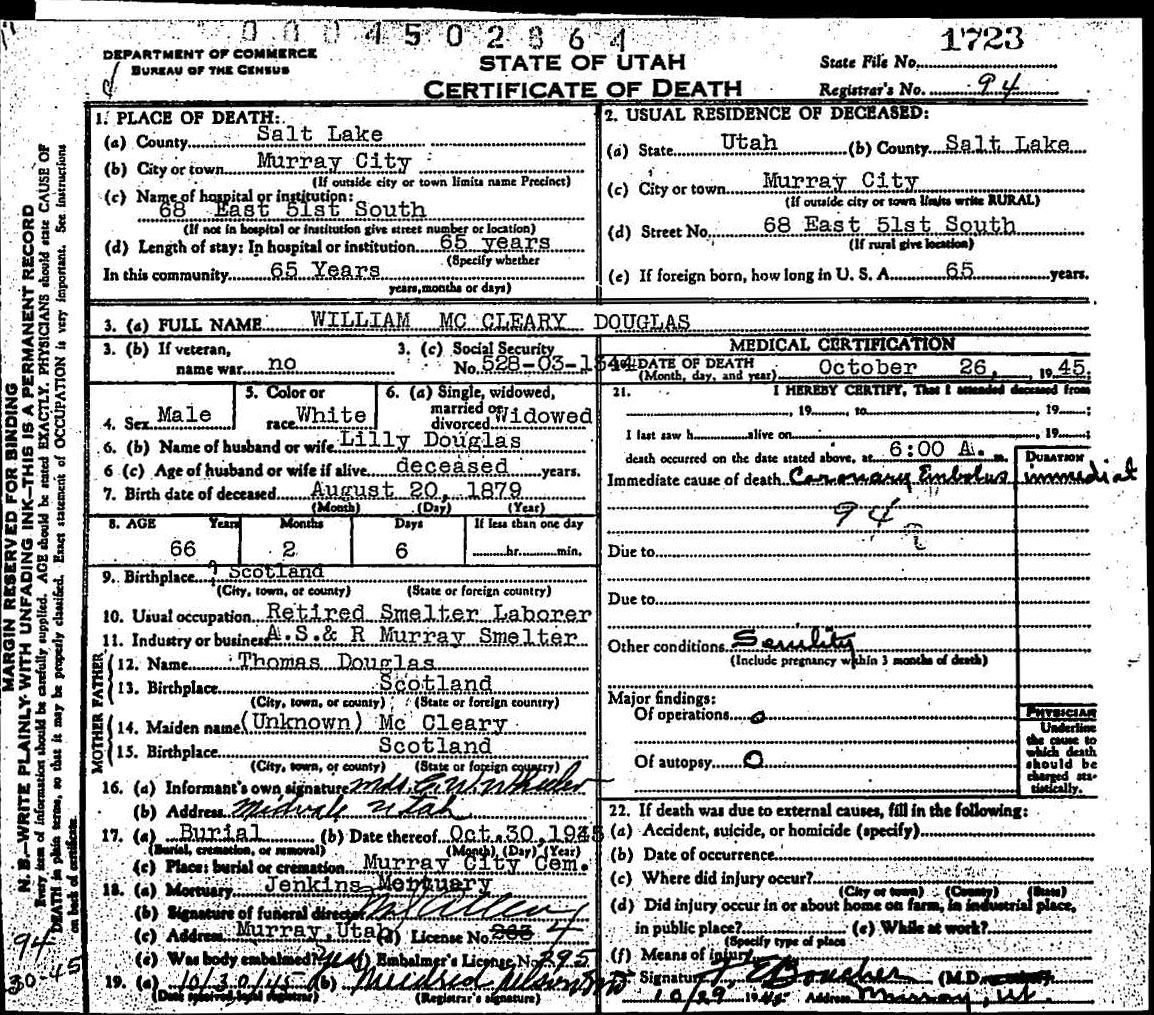 0004502864
1723
DEPARTMENT OF COMMERCE
BUREAU OF THE CENSUS
STATE OF UTAH
CERTIFICATE OF DEATH
State File No.
Registrar's No. 94
MARGIN RESERVED FOR BINDING
N. B.—WRITE PLAINLY WITH UNFADING INK—THIS IS A PERMANENT RECORD
Every item of information should be carefully supplied. AGE should be stated EXACTLY. PHYSICIANS should state CAUSE OF
DEATH in plain terms, so that it may be properly classified. Exact statement of OCCUPATION is very important. See instructions
on back of certificate.
94
30-45
1. PLACE OF DEATH:
(a) County Salt Lake
(b) City or town Murray City
(If outside city or town limits name Precinct)
(c) Name of hospital or institution:
68 East 51st South
(If not in hospital or institution give street number or location)
(d) Length of stay: In hospital or institution 65 years
(Specify whether
In this community 65 Years
years, months or days)
2. USUAL RESIDENCE OF DECEASED:
(a) State Utah (b) County Salt Lake
(c) City or town Murray City
(If outside city or town limits write RURAL)
(d) Street No. 68 East 51st South
(If rural give location)
(e) If foreign born, how long in U. S. A. 65 years.
3. (a) FULL NAME WILLIAM MC CLEARY DOUGLAS
3. (b) If veteran,
name war no
3. (c) Social Security
No. 528-03-1344
4. Sex Male
5. Color or
race White
6. (a) Single, widowed,
married or
divorced Widowed
6. (b) Name of husband or wife Lilly Douglas
6 (c) Age of husband or wife if alive deceased years.
7. Birth date of deceased August 20, 1879
(Month) (Day) (Year)
8. AGE Years Months Days If less than one day
66 2 6 hr. min.
9. Birthplace ? Scotland
(City, town, or county) (State or foreign country)
10. Usual occupation Retired Smelter Laborer
11. Industry or business A.S.& R Murray Smelter
FATHER
12. Name Thomas Douglas
13. Birthplace Scotland
(City, town, or county) (State or foreign country)
MOTHER
14. Maiden name (Unknown) Mc Cleary
15. Birthplace Scotland
(City, town, or county) (State or foreign country)
16. (a) Informant's own signature Mrs. G.W. Wheeler
(b) Address Midvale Utah
17. (a) Burial (b) Date thereof Oct. 30, 1945
(Burial, cremation, or removal) (Month) (Day) (Year)
(c) Place: burial or cremation Murray City Cem.
18. (a) Mortuary Jenkins Mortuary
(b) Signature of funeral director
(c) Address Murray, Utah (d) License No. 263 4
(e) Was body embalmed? yes (f) Embalmer's License No. 295
19. (a) 10/30/45 (b) Mildred Nelson
(Date received local registrar) (Registrar's signature)
MEDICAL CERTIFICATION
DATE OF DEATH October 26, 1945
(Month, day, and year)
21. I HEREBY CERTIFY, That I attended deceased from
, 19 , to , 19 ;
I last saw h alive on , 19 ;
death occurred on the date stated above, at 6:00 A. m.
DURATION
Immediate cause of death Coronary Embolus immediat
94
Due to
Due to
Other conditions Senility
(Include pregnancy within 3 months of death)
Major findings:
Of operations o
Of autopsy O
PHYSICIAN
Underline
the cause to
which death
should be
charged sta-
tistically.
22. If death was due to external causes, fill in the following:
(a) Accident, suicide, or homicide (specify)
(b) Date of occurrence
(c) Where did injury occur?
(City or town) (County) (State)
(d) Did injury occur in or about home on farm, in industrial place,
in public place? (e) While at work?
(Specify type of place
(f) Means of injury
Signature J E Boucher (M.D.
10/29 1945 Address Murray, Ut.